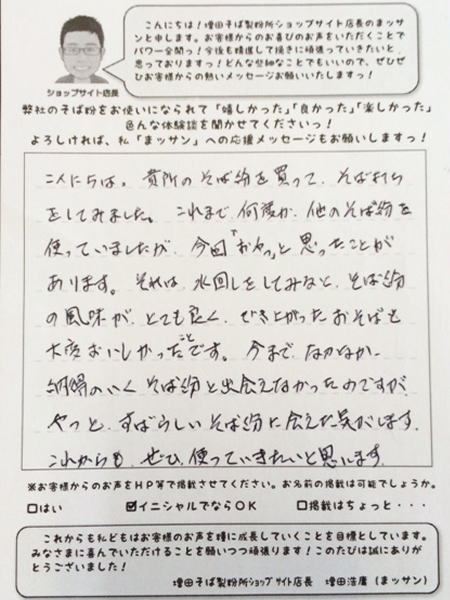 こんにちは！増田そば製粉所ショップサイト店長のマッサ
ンと申します。お客様からのお喜びのお声をいただくことで
パワー全開っ！今後も精進して挽きに頑張っていきたいと
思っておりますっ！どんな些細なことでもいいので、ぜひぜ
ひお客様からの熱いメッセージお願いいたしますっ！
ショップサイト店長
弊社のそば粉をお使いになられて「嬉しかった」「良かった」「楽しかった」
色んな体験談を聞かせてくださいっ！
よろしければ、私「マッサン」への応援メッセージもお願いしますっ！
こんにちは。貴所のそば粉を買って、そば打ち
をしてみました。これまで何度か、他のそば粉を
使っていましたが、今回「おやっ」と思ったことが
あります。それは、水回しをしてみると、そば粉
の風味が、とても良く、でき上がったおそばも
大変おいしかったことです。今まで、なかなか
納得のいくそば粉と出会えなかったのですが
やっと、すばらしいそば粉に会えた気がします。
これからも、ぜひ、使っていきたいと思います。
※お客様からのお声をHP等で掲載させてください。お名前の掲載は可能でしょうか。
□はい ☑イニシャルでならOK □掲載はちょっと・・・
これからも私どもはお客様のお声を糧に成長していくことを目標としています。
みなさまに喜んでいただけることを願いつつ頑張ります！このたびは誠にありが
とうございました！
増田そば製粉所ショップサイト店長 増田浩庸（マッサン）